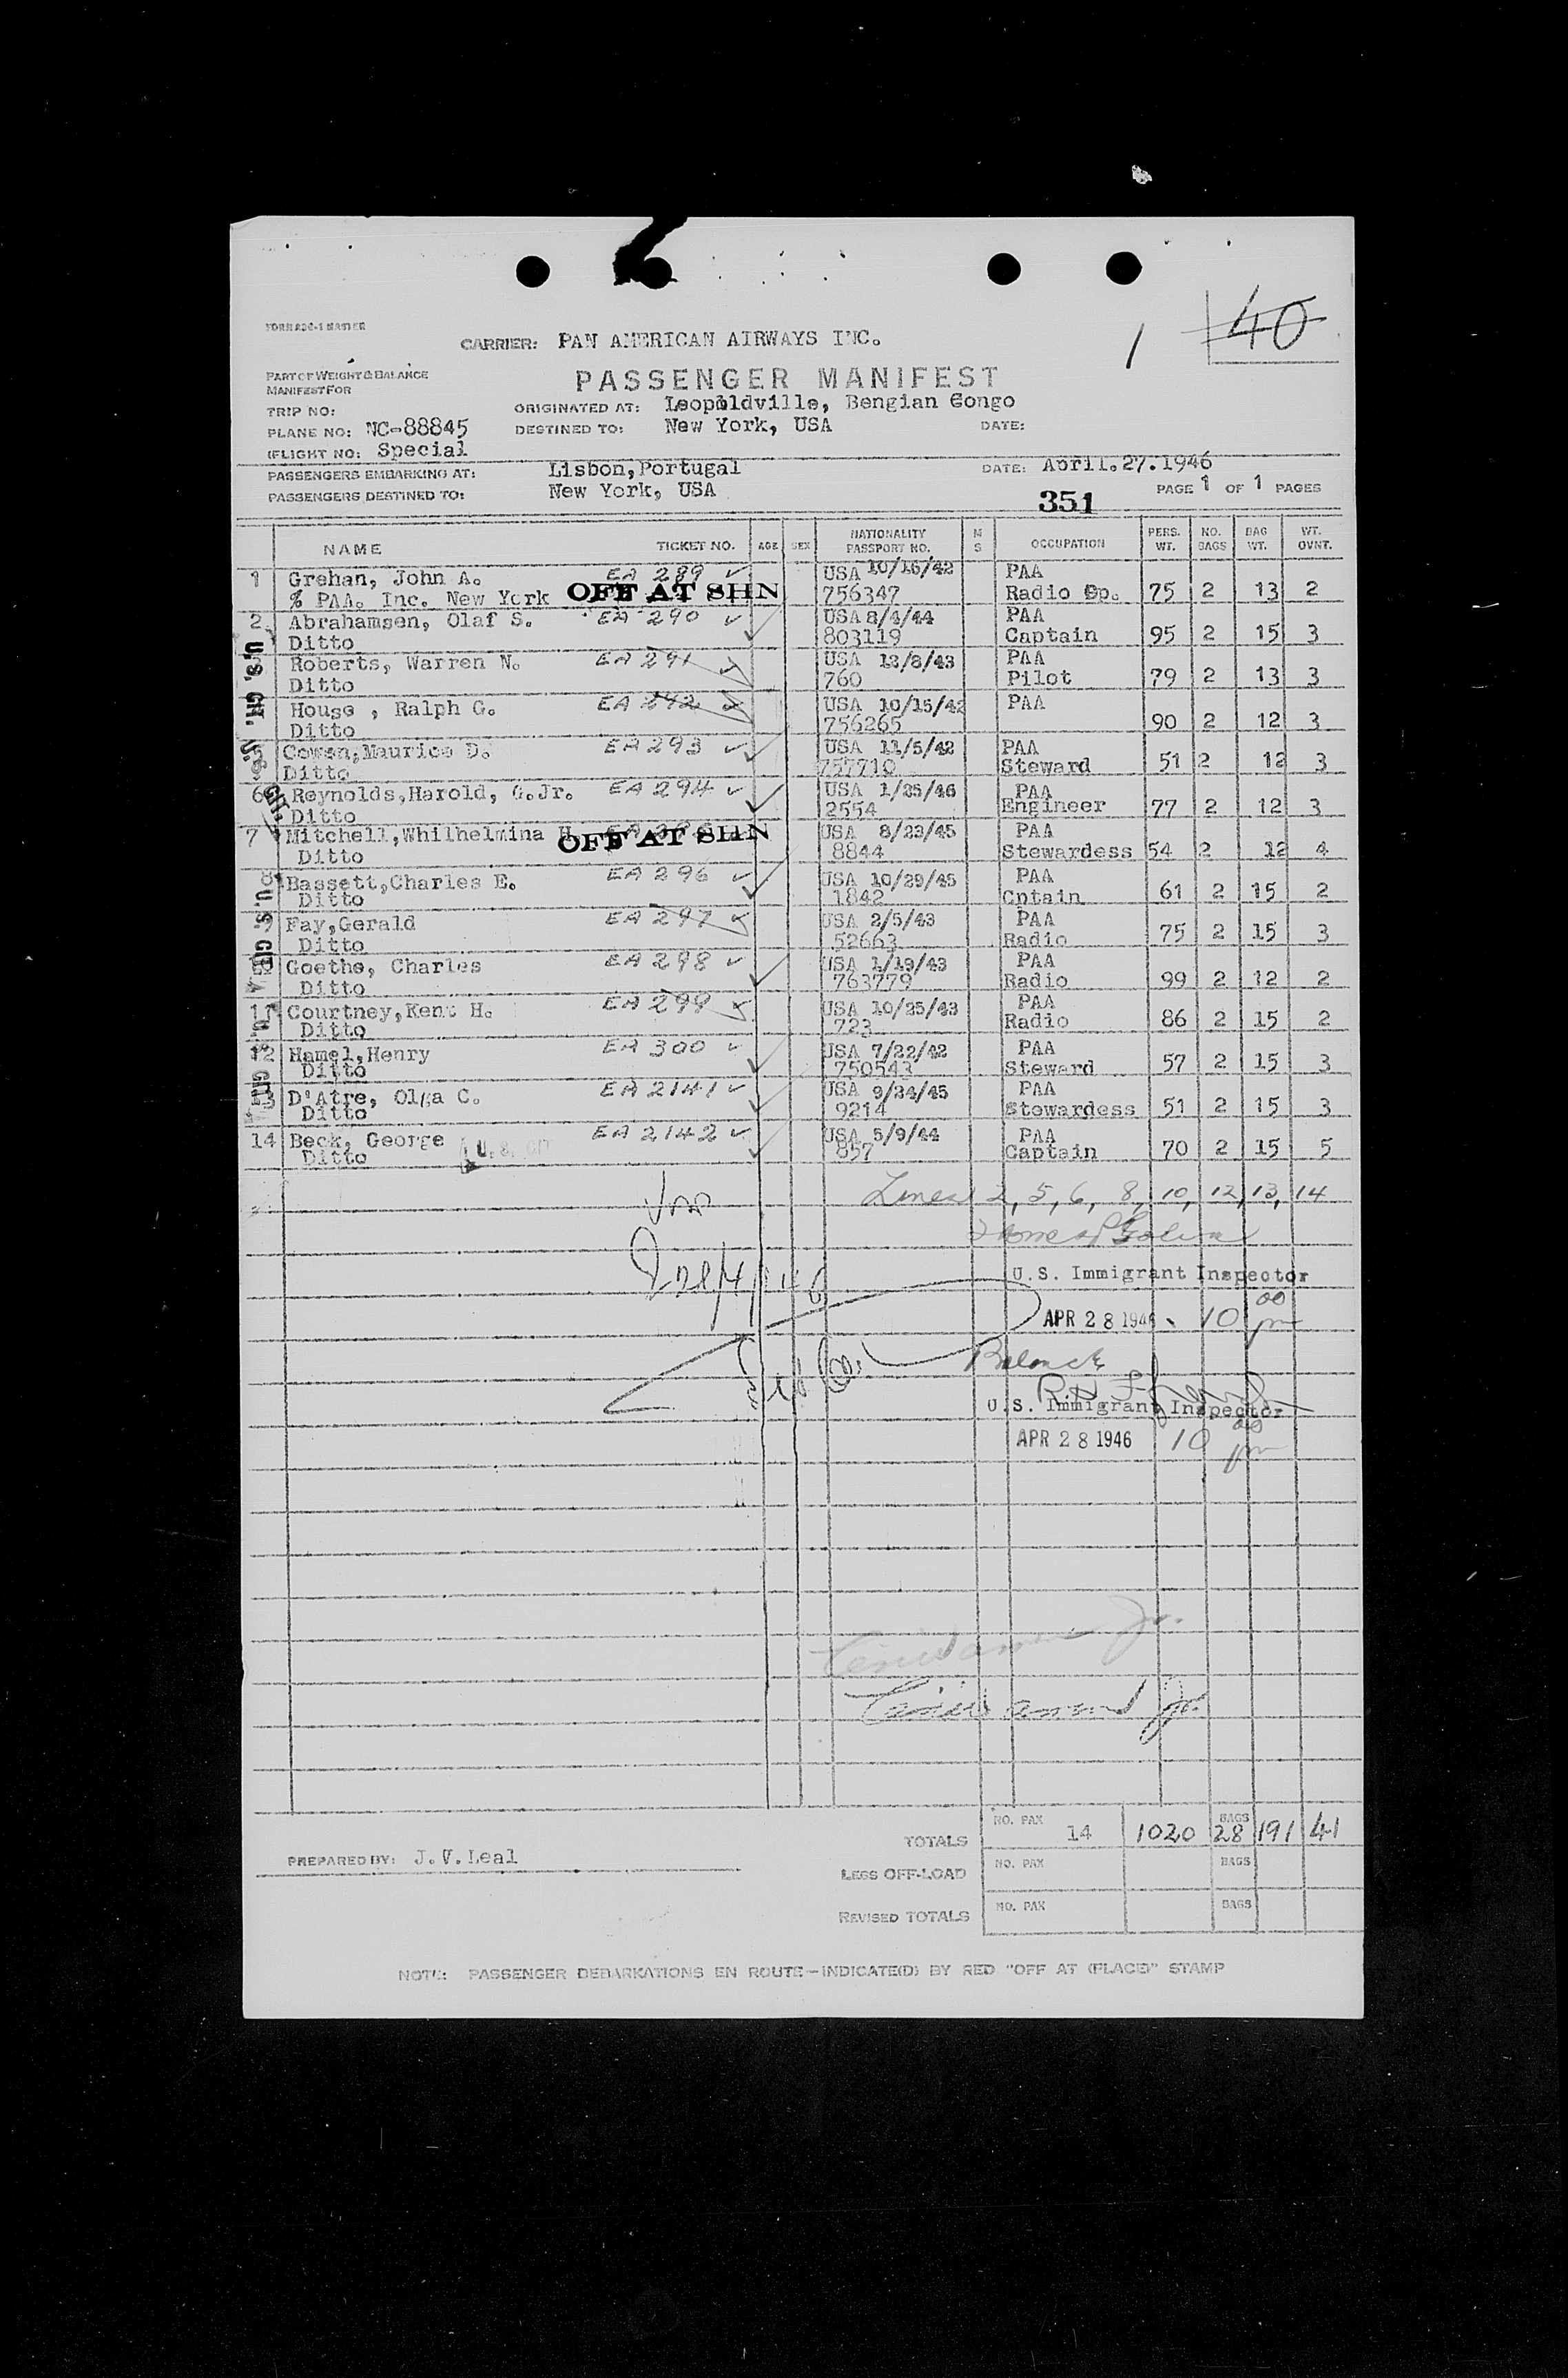 FORM ADC-1 MASTER
CARRIER: PAN AMERICAN AIRWAYS INC.
1
40
PART OF WEIGHT & BALANCE
MANIFEST FOR
PASSENGER MANIFEST
TRIP NO:
ORIGINATED AT: Leopoldville, Bengian Congo
PLANE NO: NC-88845
DESTINED TO: New York, USA
DATE:
(FLIGHT NO: Special
PASSENGERS EMBARKING AT: Lisbon,Portugal
DATE: April.27.1946
PASSENGERS DESTINED TO: New York, USA
351
PAGE 1 OF 1 PAGES
NAME TICKET NO. AGE SEX NATIONALITY PASSPORT NO. M S OCCUPATION PERS. WT. NO. BAGS BAG WT. WT. OVNT.
1 Grehan, John A. EA 289 USA 10/16/42 PAA
% PAA. Inc. New York OFF AT SHN 756347 Radio Op. 75 2 13 2
2 Abrahamsen, Olaf S. EA 290 USA 8/4/44 PAA
Ditto 803119 Captain 95 2 15 3
Roberts, Warren N. EA 291 USA 12/8/43 PAA
Ditto 760 Pilot 79 2 13 3
House , Ralph G. EA 292 USA 10/15/42 PAA
Ditto 756265 90 2 12 3
Cowen,Maurice D. EA 293 USA 11/5/42 PAA
Ditto 757710 Steward 51 2 12 3
6 Reynolds,Harold, G.Jr. EA 294 USA 1/25/46 PAA
Ditto 2554 Engineer 77 2 12 3
7 Mitchell,Whilhelmina H. OFF AT SHN USA 8/23/45 PAA
Ditto 8844 Stewardess 54 2 12 4
8 Bassett,Charles E. EA 296 USA 10/29/45 PAA
Ditto 1842 Cptain 61 2 15 2
Fay,Gerald EA 297 USA 2/5/43 PAA
Ditto 52663 Radio 75 2 15 3
Goethe, Charles EA 298 USA 1/19/43 PAA
Ditto 763779 Radio 99 2 12 2
11 Courtney,Kent H. EA 299 USA 10/25/43 PAA
Ditto 723 Radio 86 2 15 2
12 Hamel,Henry EA 300 USA 7/22/42 PAA
Ditto 750543 Steward 57 2 15 3
13 D'Atre, Olga C. EA 2141 USA 9/24/45 PAA
Ditto 9214 Stewardess 51 2 15 3
14 Beck, George EA 2142 USA 5/9/44 PAA
Ditto U.S. CIT 857 Captain 70 2 15 5
Lines 2, 5, 6, 8, 10, 12, 13, 14
U.S. Immigrant Inspector
APR 28 1946 10 00 pm
Balance
U.S. Immigrant Inspector
APR 28 1946 10 00 pm
TOTALS NO. PAX 14 1020 BAGS 28 191 41
PREPARED BY: J.V.Leal
LESS OFF-LOAD NO. PAX BAGS
REVISED TOTALS NO. PAX BAGS
NOTE: PASSENGER DEBARKATIONS EN ROUTE—INDICATE(D) BY RED "OFF AT (PLACE)" STAMP